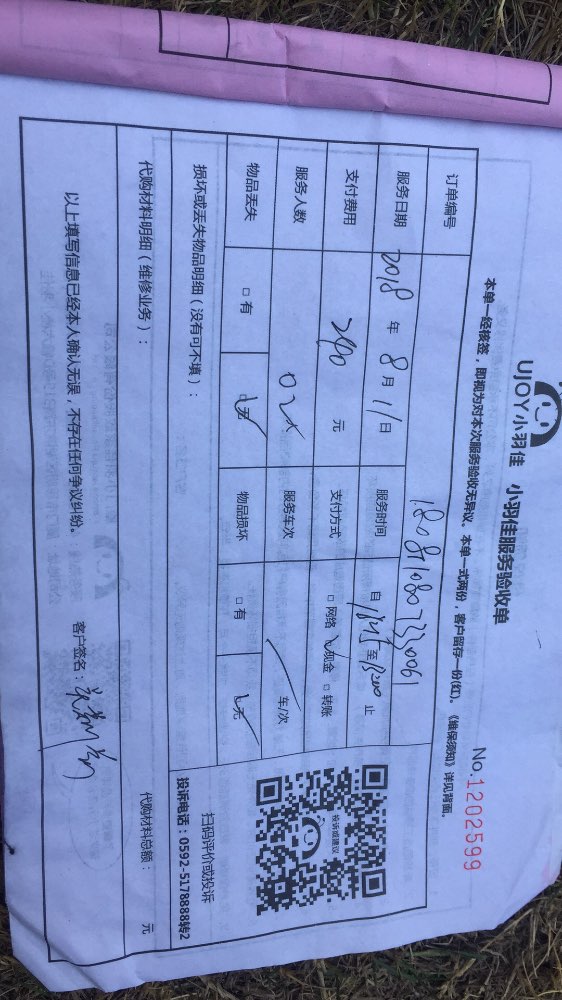 UJOY小羽佳 小羽佳服务验收单
No.1202599
本单一经核签，即视为对本次服务验收无异议。本单一式两份，客户留存一份(红)。《维保须知》详见背面。
订单编号
服务日期 2018 年 8 月 11 日 服务时间 自 至 止
支付费用 元 支付方式 □ 网络 ☑现金 □ 转账
服务人数 02人 服务车次 / 车/次
物品丢失 □ 有 ☑无 物品损坏 □ 有 ☑无
投诉或建议
扫码评价或投诉
投诉电话：0592-5178888转2
损坏或丢失物品明细（没有可不填）：
代购材料明细（维修业务）： 代购材料总额： 元
以上填写信息已经本人确认无误，不存在任何争议纠纷。 客户签名：